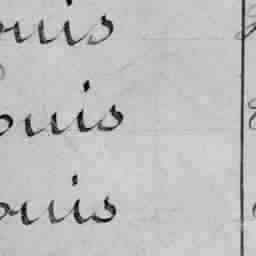 ouis
ouis
ouis